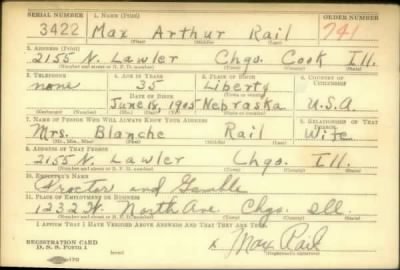 SERIAL NUMBER 1. NAME (Print) ORDER NUMBER
3422 Max Arthur Rail 741
(First) (Middle) (Last)
2. ADDRESS (Print)
2155 N. Lawler Chgo. Cook Ill.
(Number and street or R. F. D. number) (Town) (County) (State)
3. TELEPHONE 4. AGE IN YEARS 5. PLACE OF BIRTH 6. COUNTRY OF CITIZENSHIP
none 35 Liberty
DATE OF BIRTH (Town or county)
June 18, 1905 Nebraska U.S.A.
(Exchange) (Number) (Mo.) (Day) (Yr.) (State or country)
7. NAME OF PERSON WHO WILL ALWAYS KNOW YOUR ADDRESS 8. RELATIONSHIP OF THAT PERSON
Mrs. Blanche Rail Wife
(Mr., Mrs., Miss) (First) (Middle) (Last)
9. ADDRESS OF THAT PERSON
2155 N. Lawler Chgo. Ill.
(Number and street or R. F. D. number) (Town) (County) (State)
10. EMPLOYER'S NAME
Procter and Gamble
11. PLACE OF EMPLOYMENT OR BUSINESS
1232 W. North Ave. Chgo. Ill.
(Number and street or R. F. D. number) (Town) (County) (State)
I AFFIRM THAT I HAVE VERIFIED ABOVE ANSWERS AND THAT THEY ARE TRUE.
REGISTRATION CARD
D. S. S. Form 1
x Max Rail
(Registrant's signature)